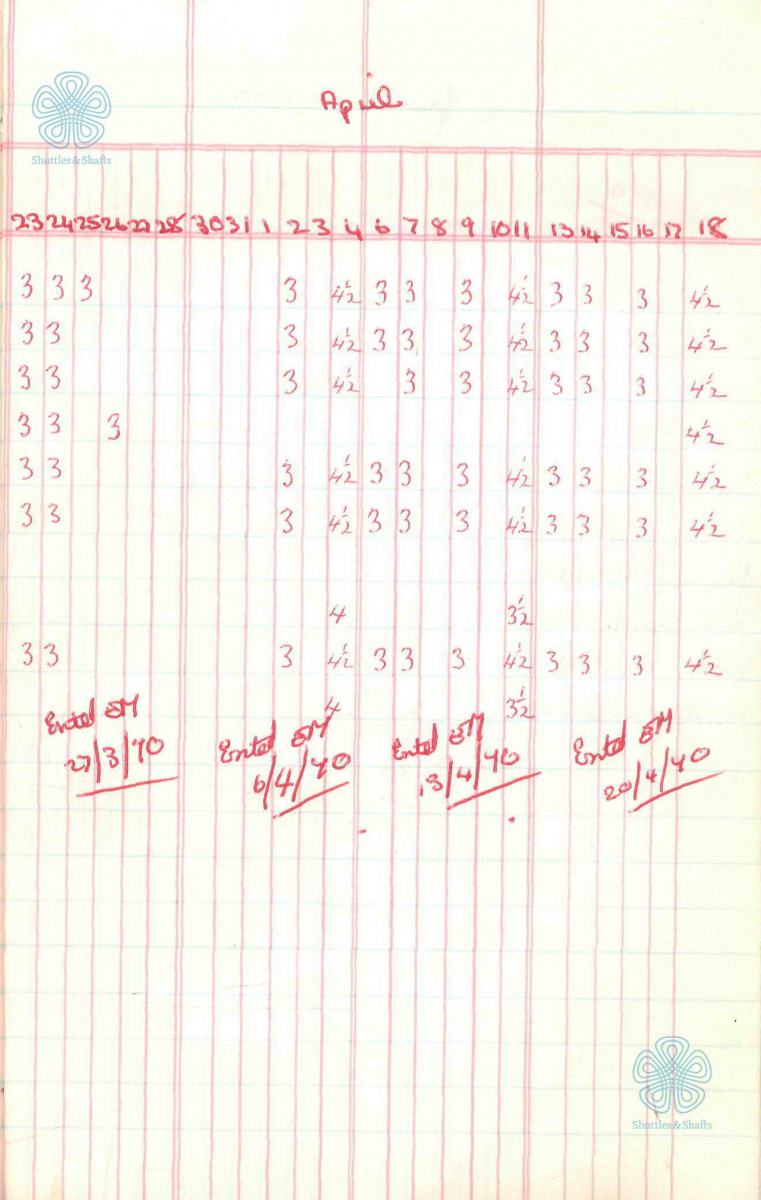 April
Shuttles & Shafts
23 24 25 26 27 28 30 31 1 2 3 4 6 7 8 9 10 11 13 14 15 16 17 18
3 3 3 3 4½ 3 3 3 4½ 3 3 3 4½
3 3 3 4½ 3 3 3 4½ 3 3 3 4½
3 3 3 4½ 3 3 4½ 3 3 3 4½
3 3 3 4½
3 3 3 4½ 3 3 3 4½ 3 3 3 4½
3 3 3 4½ 3 3 3 4½ 3 3 3 4½
4 3½
3 3 3 4½ 3 3 3 4½ 3 3 3 4½
4 3½
Entd EM Entd EM Entd EM Entd EM
27/3/70 6/4/70 13/4/70 20/4/70
Shuttles & Shafts